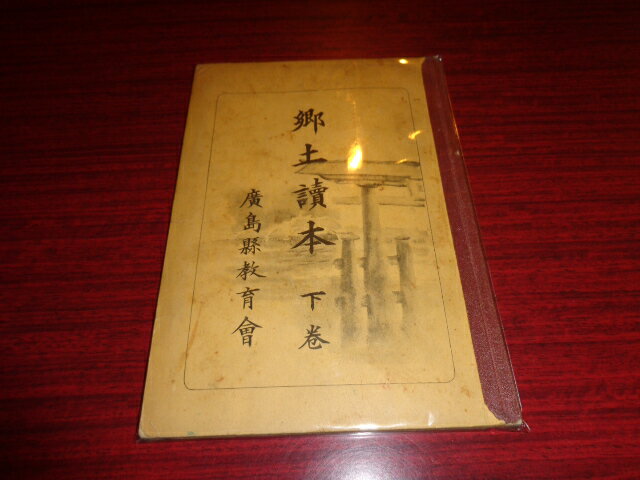 郷土讀本 下巻
廣島縣教育會